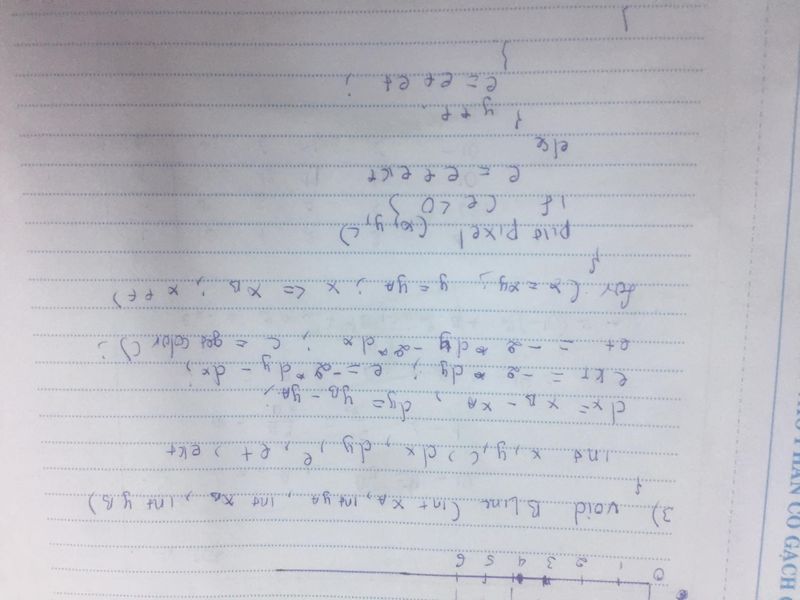 0 1 2 3 4 5 6
3) void BLine (int xA, int yA, int xB, int yB)
{
int x, y, c, dx, dy, e, et, ekt
dx = xB - xA, dy = yB - yA;
ekt = -2 * dy ; e = -2 * dy - dx;
et = -2 * dy - 2 * dx ; c = getcolor();
for (x = xy; y = yA ; x <= xB ; x++)
{
put pixel (x, y, c)
if (e < 0) }
e = e + ekt
else
{ y++.
e = e + et ;
}
}
PHẦN CÓ GẠCH